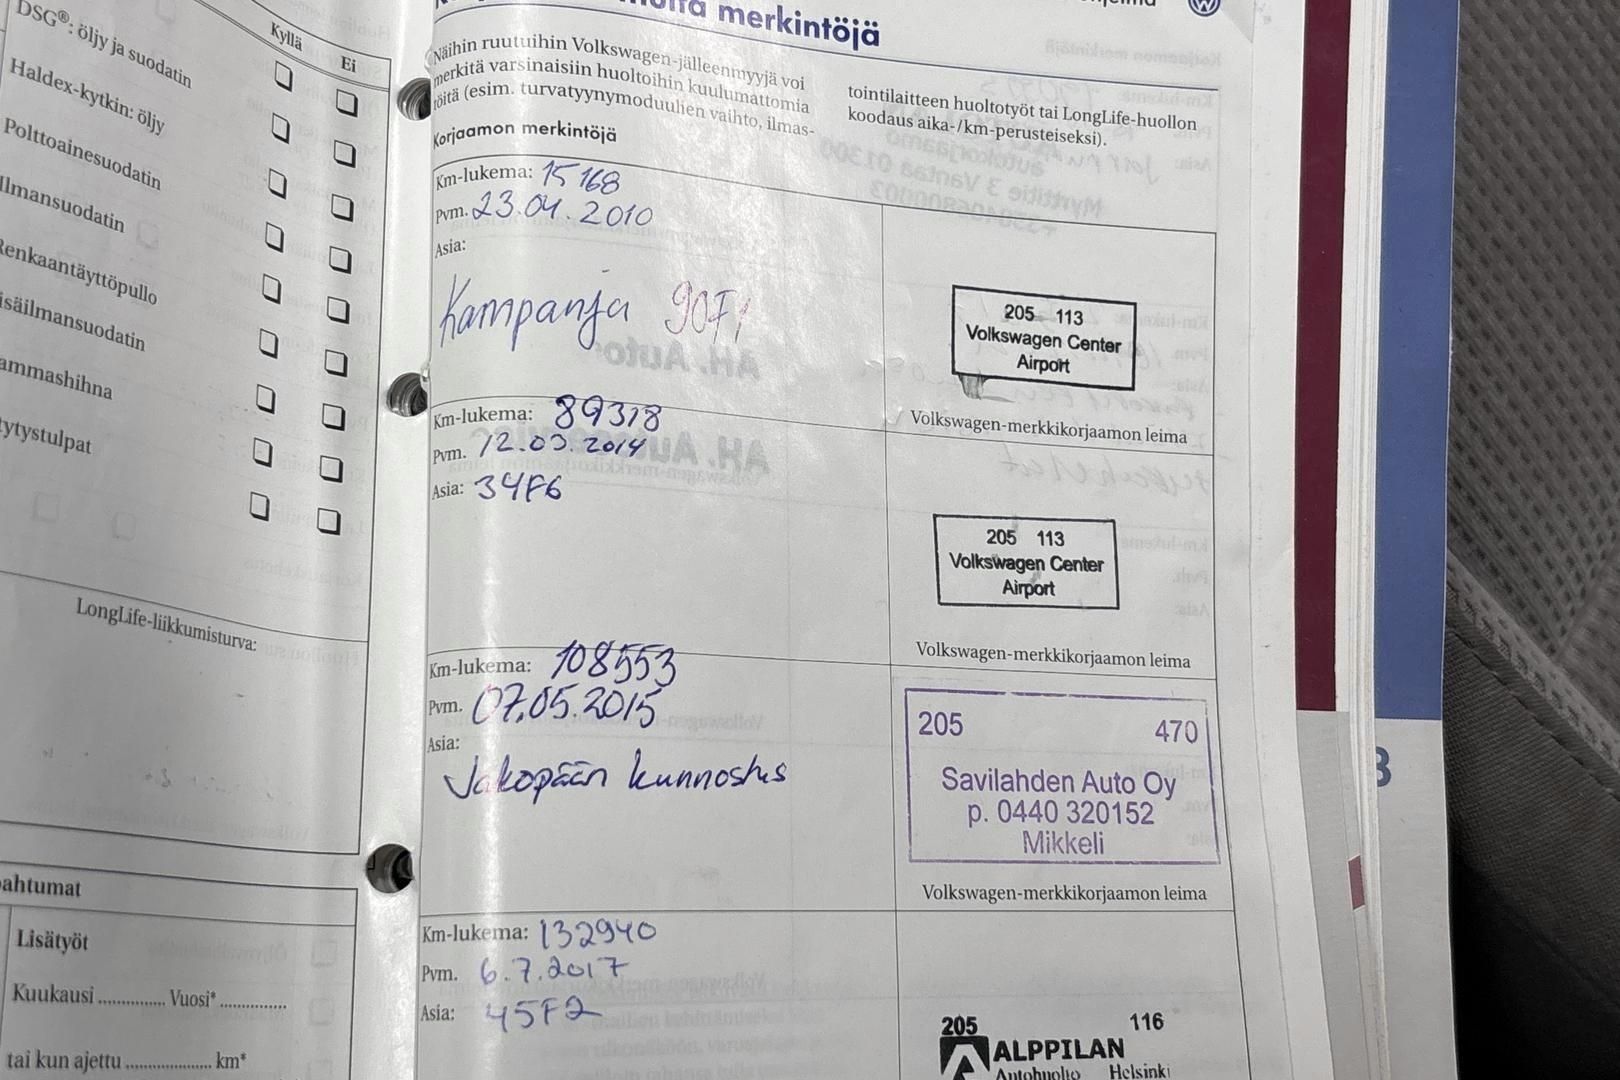 DSG®: öljy ja suodatin
Haldex-kytkin: öljy
Polttoainesuodatin
Ilmansuodatin
Renkaantäyttöpullo
isäilmansuodatin
ammashihna
ytystulpat
Kyllä
Ei
LongLife-liikkumisturva:
ahtumat
Lisätyöt
Kuukausi .............. Vuosi* ..............
tai kun ajettu .................. km*
merkintöjä
Näihin ruutuihin Volkswagen-jälleenmyyjä voi
merkitä varsinaisiin huoltoihin kuulumattomia
töitä (esim. turvatyynymoduulien vaihto, ilmas-
tointilaitteen huoltotyöt tai LongLife-huollon
koodaus aika-/km-perusteiseksi).
Korjaamon merkintöjä
Km-lukema: 15168
Pvm. 23.04.2010
Asia:
Kampanja 90F1
205 113
Volkswagen Center
Airport
Volkswagen-merkkikorjaamon leima
Km-lukema: 89318
Pvm. 12.03.2014
Asia: 34F6
205 113
Volkswagen Center
Airport
Volkswagen-merkkikorjaamon leima
Km-lukema: 108553
Pvm. 07.05.2015
Asia:
Jakopään kunnostus
205 470
Savilahden Auto Oy
p. 0440 320152
Mikkeli
Volkswagen-merkkikorjaamon leima
Km-lukema: 132940
Pvm. 6.7.2017
Asia: 45F2
205 116
ALPPILAN
Autohuolto Helsinki